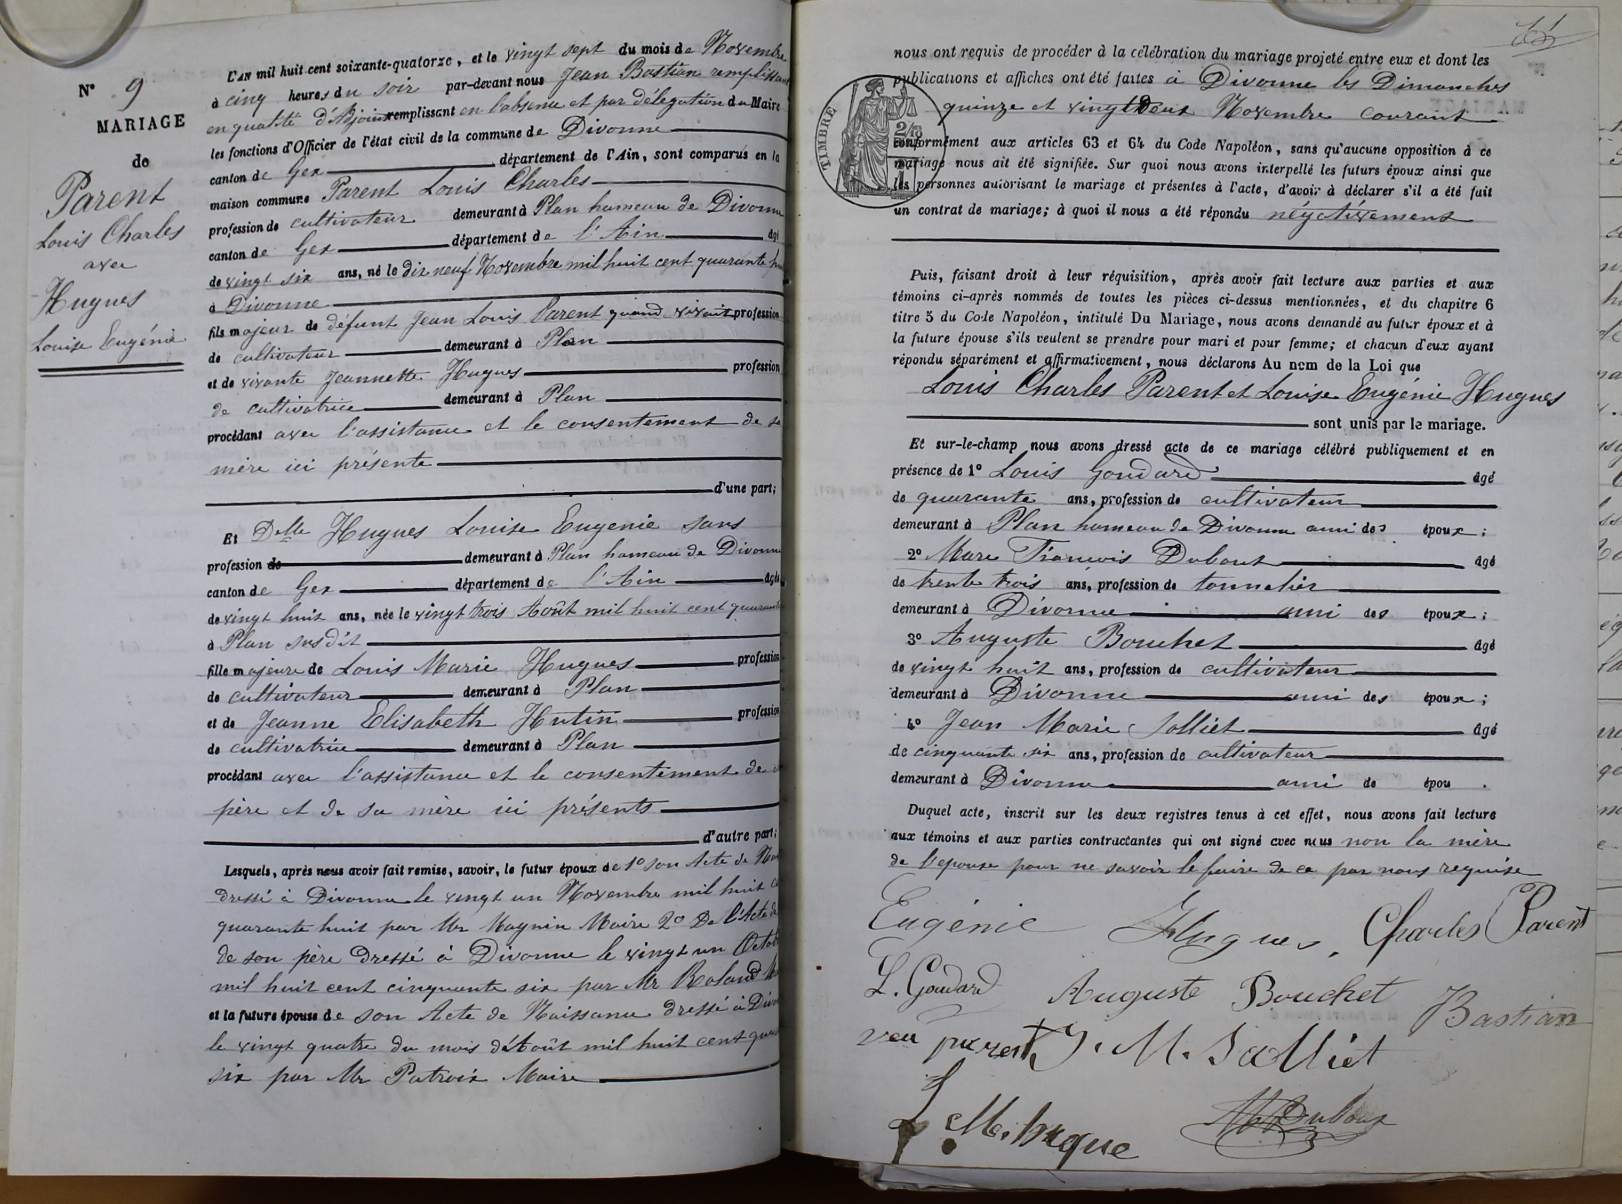 N° 9
MARIAGE
de
Parent
Louis Charles
avec
Hugues
Louise Eugénie
L'AN mil huit cent soixante-quatorze, et le vingt sept du mois de Novembre
à cinq heures du soir par-devant nous Jean Bastian remplissant
en qualité d'Adjoint remplissant en l'absence et par délégation du Maire
les fonctions d'Officier de l'état civil de la commune de Divonne
canton de Gex département de l'Ain, sont comparus en la
maison commune Parent Louis Charles
profession de cultivateur demeurant à Plan hameau de Divonne
canton de Gex département de l'Ain âgé
de vingt six ans, né le dix neuf Novembre mil huit cent quarante
à Divonne
fils majeur de défunt Jean Louis Parent quand vivait profession
de cultivateur demeurant à Plan
et de vivante Jeannette Hugues profession
de cultivatrice demeurant à Plan
procédant avec l'assistance et le consentement de sa
mère ici présente
d'une part;
Et Delle Hugues Louise Eugenie sans
profession de demeurant à Plan hameau de Divonne
canton de Gex département de l'Ain âgée
de vingt huit ans, née le vingt trois Août mil huit cent quarante
à Plan susdit
fille majeure de Louis Marie Hugues profession
de cultivateur demeurant à Plan
et de Jeanne Elisabeth Hutin profession
de cultivatrice demeurant à Plan
procédant avec l'assistance et le consentement de
père et de sa mère ici présents
d'autre part;
Lesquels, après nous avoir fait remise, savoir, le futur époux de 1° son Acte de
dressé à Divonne le vingt un Novembre mil huit
quarante huit par Mr Magnin Maire 2° De l'Acte de
de son père dressé à Divonne le vingt un
mil huit cent cinquante six par Mr Roland
et la future épouse de son Acte de Naissance dressé à
le vingt quatre du mois d'Août mil huit cent
six par Mr Patroix Maire
nous ont requis de procéder à la célébration du mariage projeté entre eux et dont les
publications et affiches ont été faites à Divonne les Dimanches
quinze et vingt Deux Novembre courant
TIMBRE
conformément aux articles 63 et 64 du Code Napoléon, sans qu'aucune opposition à ce
mariage nous ait été signifiée. Sur quoi nous avons interpellé les futurs époux ainsi que
les personnes autorisant le mariage et présentes à l'acte, d'avoir à déclarer s'il a été fait
un contrat de mariage; à quoi il nous a été répondu négativement
Puis, faisant droit à leur réquisition, après avoir fait lecture aux parties et aux
témoins ci-après nommés de toutes les pièces ci-dessus mentionnées, et du chapitre 6
titre 5 du Code Napoléon, intitulé Du Mariage, nous avons demandé au futur époux et à
la future épouse s'ils veulent se prendre pour mari et pour femme; et chacun d'eux ayant
répondu séparément et affirmativement, nous déclarons Au nom de la Loi que
Louis Charles Parent et Louise Eugénie Hugues
sont unis par le mariage.
Et sur-le-champ nous avons dressé acte de ce mariage célébré publiquement et en
présence de 1° Louis Goudard âgé
de quarante ans, profession de cultivateur
demeurant à Plan hameau de Divonne ami des époux;
2° Marc François Dubout âgé
de trente trois ans, profession de tonnelier
demeurant à Divonne ami des époux;
3° Auguste Bouchet âgé
de vingt huit ans, profession de cultivateur
demeurant à Divonne ami des époux;
4° Jean Marie Jolliet âgé
de cinquante six ans, profession de cultivateur
demeurant à Divonne ami de épou .
Duquel acte, inscrit sur les deux registres tenus à cet effet, nous avons fait lecture
aux témoins et aux parties contractantes qui ont signé avec nous non la mère
de l'epouse pour ne savoir le faire de ce par nous requise
Eugénie Hugues, Charles Parent
L. Goudard Auguste Bouchet Bastian
veu parent J. M. Jolliet
L. M. hugue M Dubout